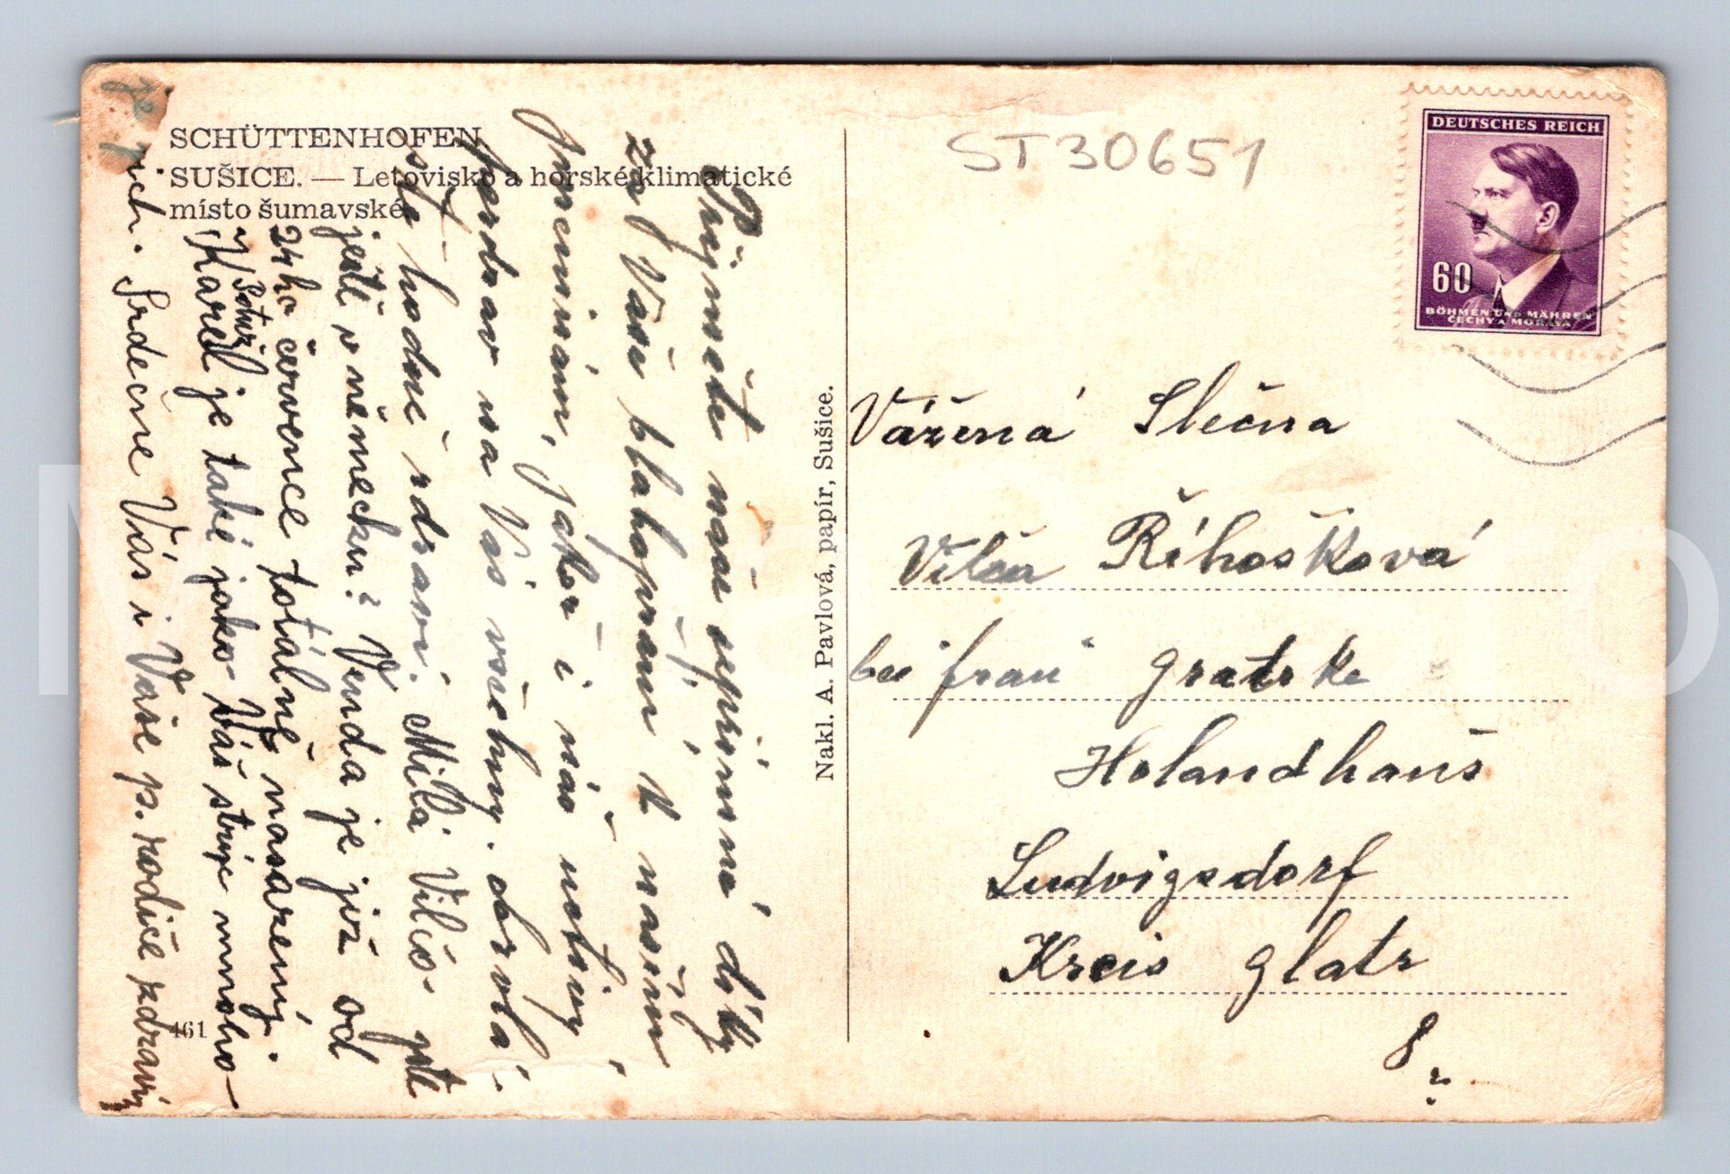 SCHÜTTENHOFEN
SUŠICE. — Letovisko a horské klimatické
místo šumavské.
Přijměte naše upřímné díky
za Vaši blahopřání k našim
jmeninám, jakož i náš uctivý
pozdrav na Vás všechny.
ste hodně zdraví. Milá Vilčo jste
ještě v německu? Venda je již od
24ho července totálně nasazený.
Karel je také jako Váš strýc mnoho-
Srdečně Vás i Vaše p. rodiče zdraví
461
Nakl. A. Pavlová, papír, Sušice.
ST30651
DEUTSCHES REICH
60
BÖHMEN UND MÄHREN
ČECHY A MORAVA
Vážená Slečna
Vilča Říhošková
bei "frau" Gratzke
Holandhauš
Ludvigsdorf
Kreis glatz
8